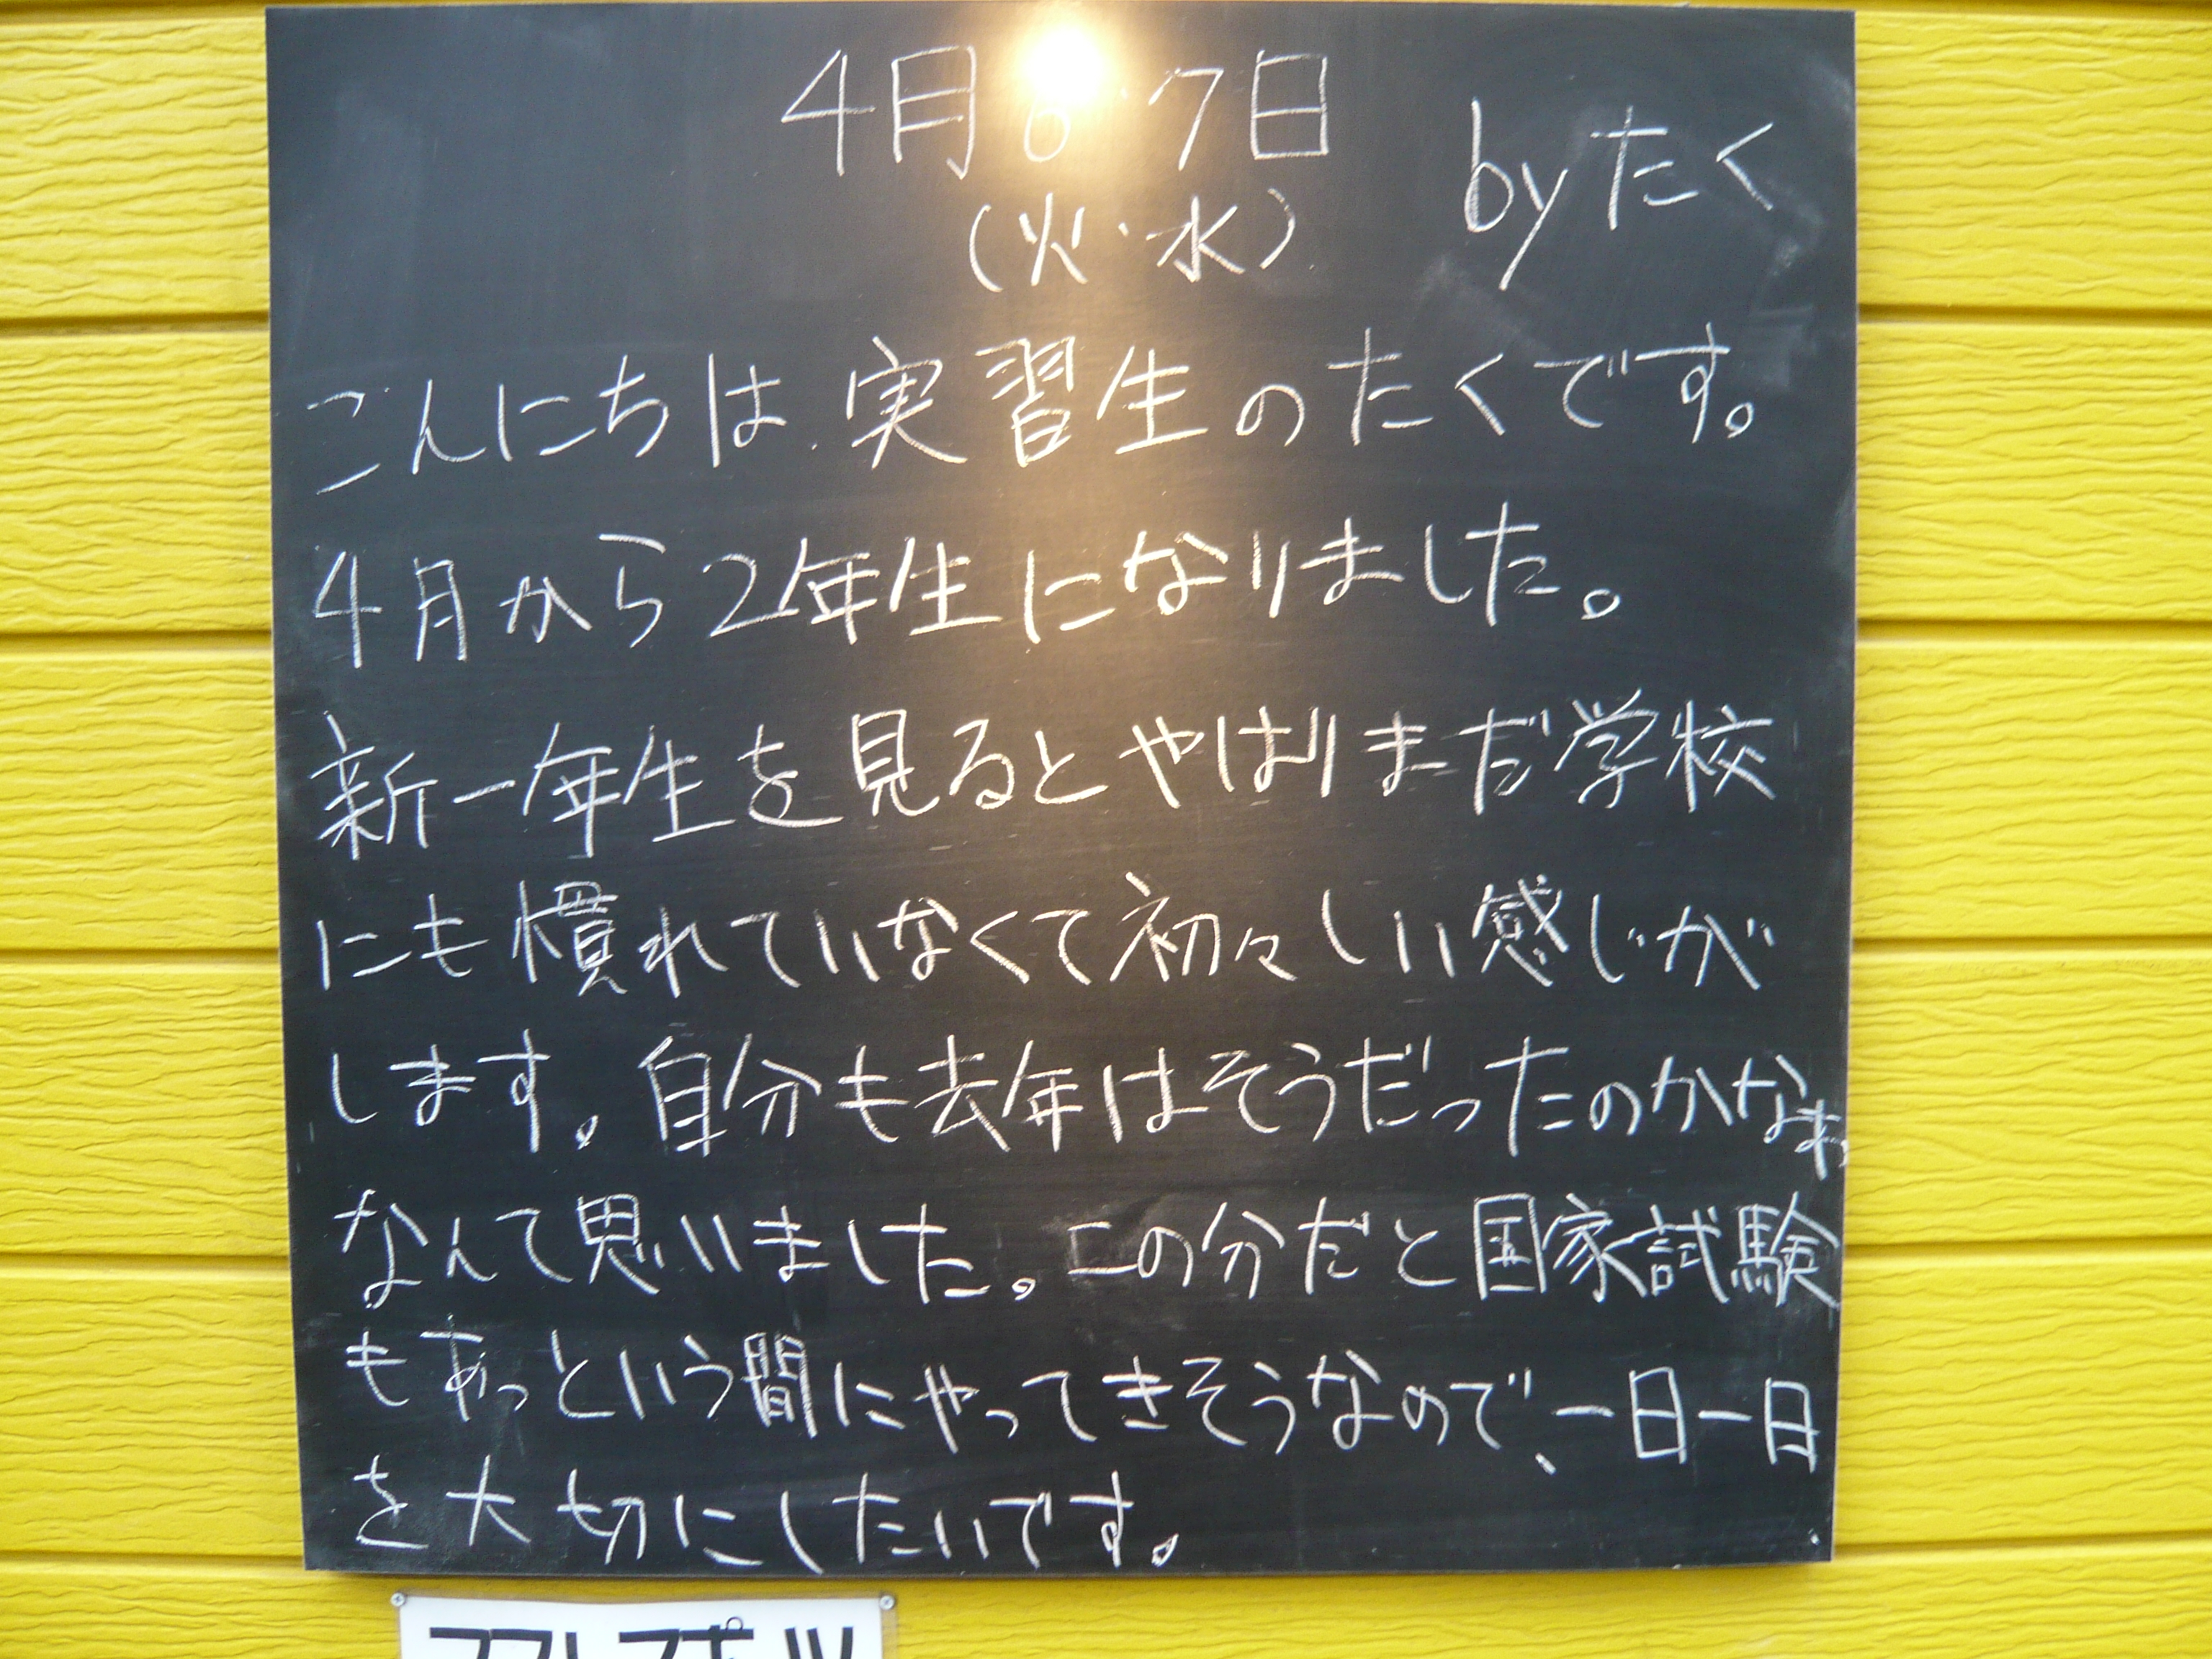 4月6・7日
byたく
(火・水)
こんにちは.実習生のたくです。
4月から2年生になりました。
新一年生を見るとやはりまだ学校
にも慣れていなくて初々しい感じが
します。自分も去年はそうだったのかなぁ
なんて思いました。この分だと国家試験
もあっという間にやってきそうなので、一日一日
を大切にしたいです。